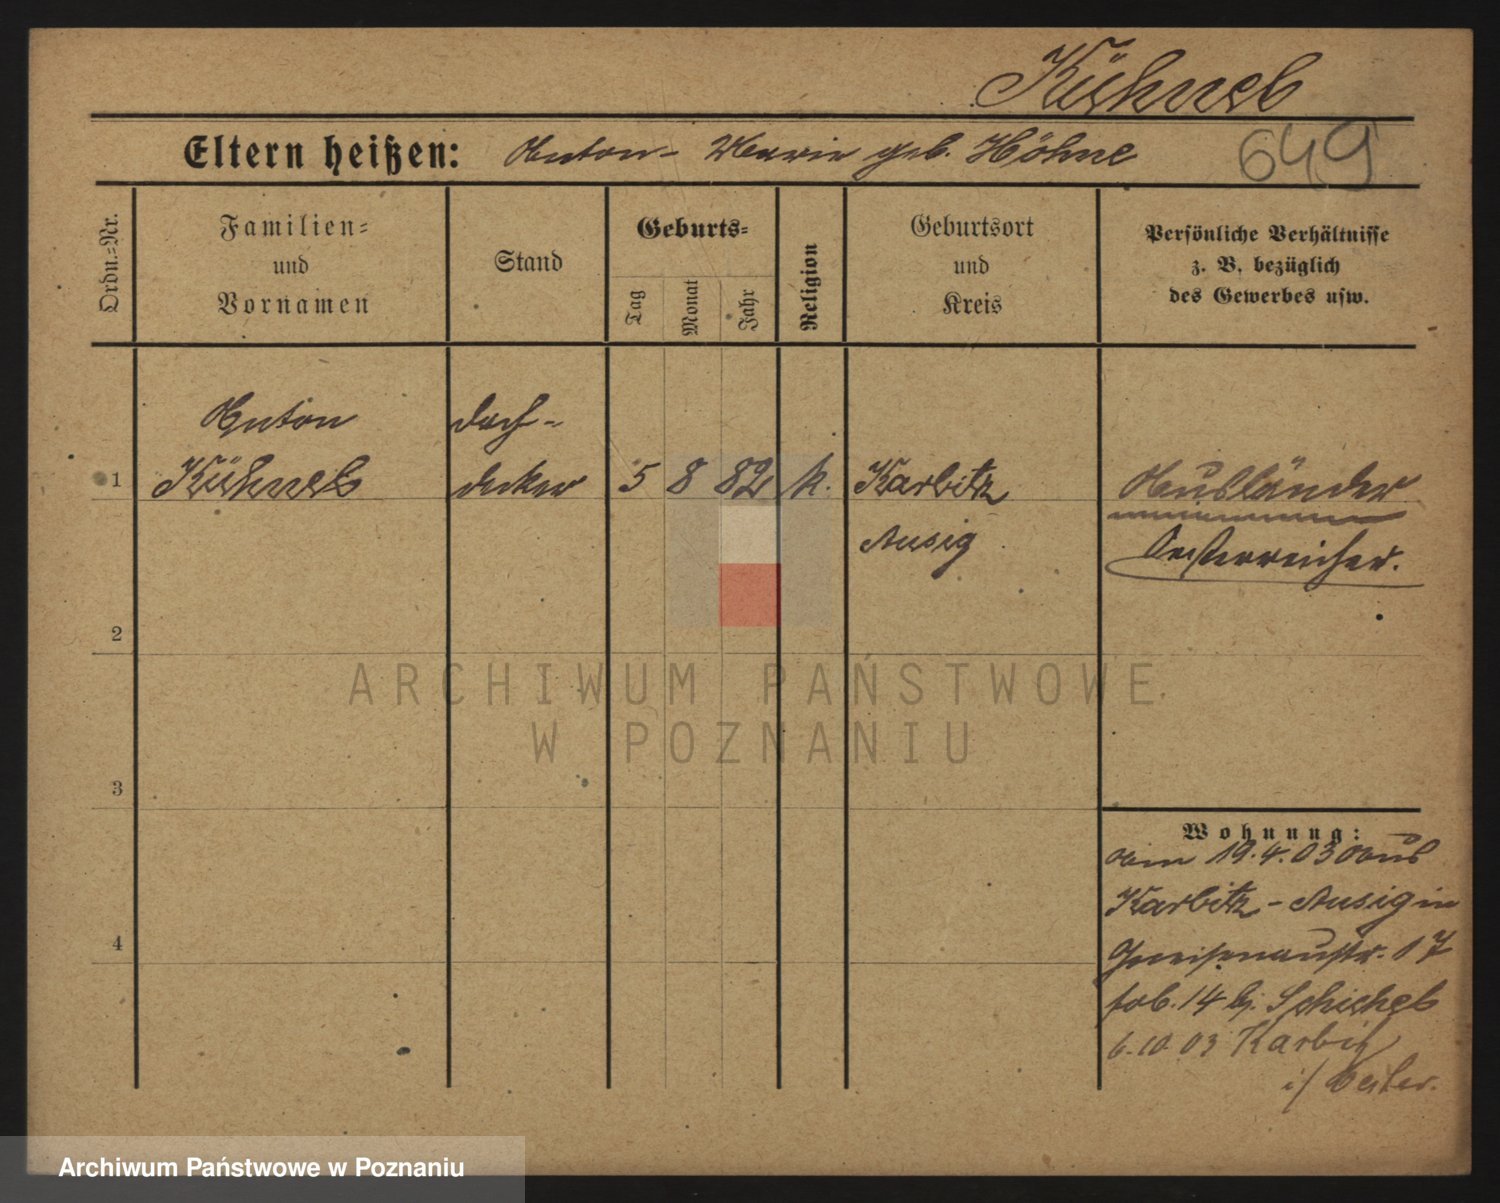 Kühnel
Eltern heißen: Anton - Marie geb. Höhne
649
Ordn.-Nr.
Familien-
und
Vornamen
Stand
Geburts-
Tag
Monat
Jahr
Religion
Geburtsort
und
Kreis
Persönliche Verhältnisse
z. B. bezüglich
des Gewerbes usw.
Anton
Kühnel
Dach-
decker
1
5 8 82 k.
Karbitz
Aussig
Ausländer
Oesterreicher.
2
3
4
Wohnung:
am 19.4.03 aus
Karbitz - Aussig in
Gneisenaustr. 17
14 b. Schickel
6.10.03 Karbitz
i/
ARCHIWUM PAŃSTWOWE
W POZNANIU
Archiwum Państwowe w Poznaniu